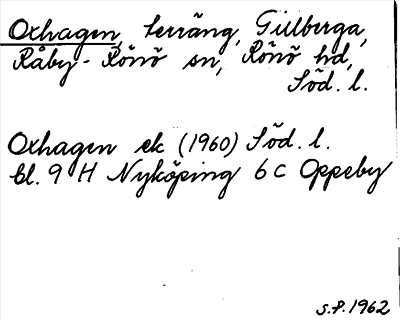 Oxhagen, terräng, Gillberga,
Råby-Rönö sn, Rönö hd,
Söd. l.
Oxhagen ek (1960) Söd. l.
bl. 9 H Nyköping 6 c Oppeby
S.P. 1962